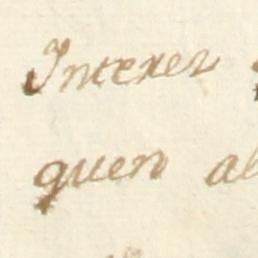 Interer
quen al